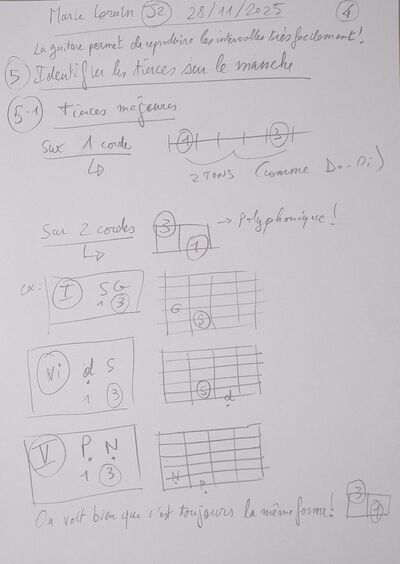 Marie Lorain S2 28/11/2025 4
La guitare permet de reproduire les intervalles très facilement!
5) Identifier les tierces sur le manche
5-1 tierces majeures
Sur 1 corde 1 3
2 TONS (comme Do-Mi)
Sur 2 cordes 3 1 → Polyphonique!
ex: I S G
1 3
G S
vi d S
1 3
S d
V P N
1 3
N P
On voit bien que c'est toujours la même forme! 3 1